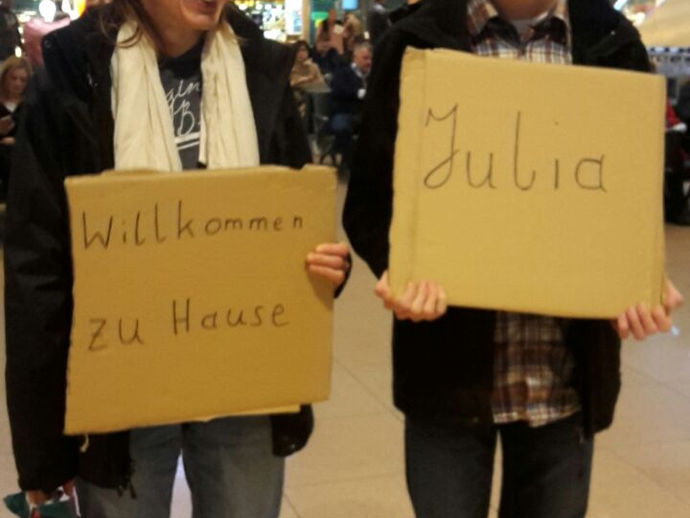 Willkommen
zu Hause
Julia